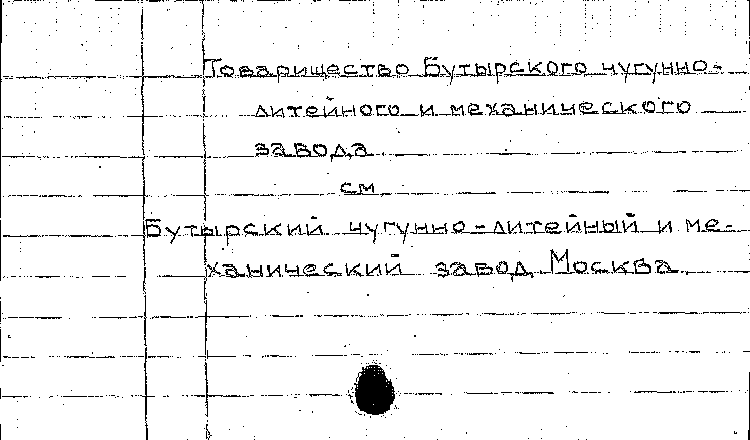 Товарищество Бутырского чугунно-
литейного и механического
завода
см
Бутырский чугунно-литейный и ме-
ханический завод, Москва.